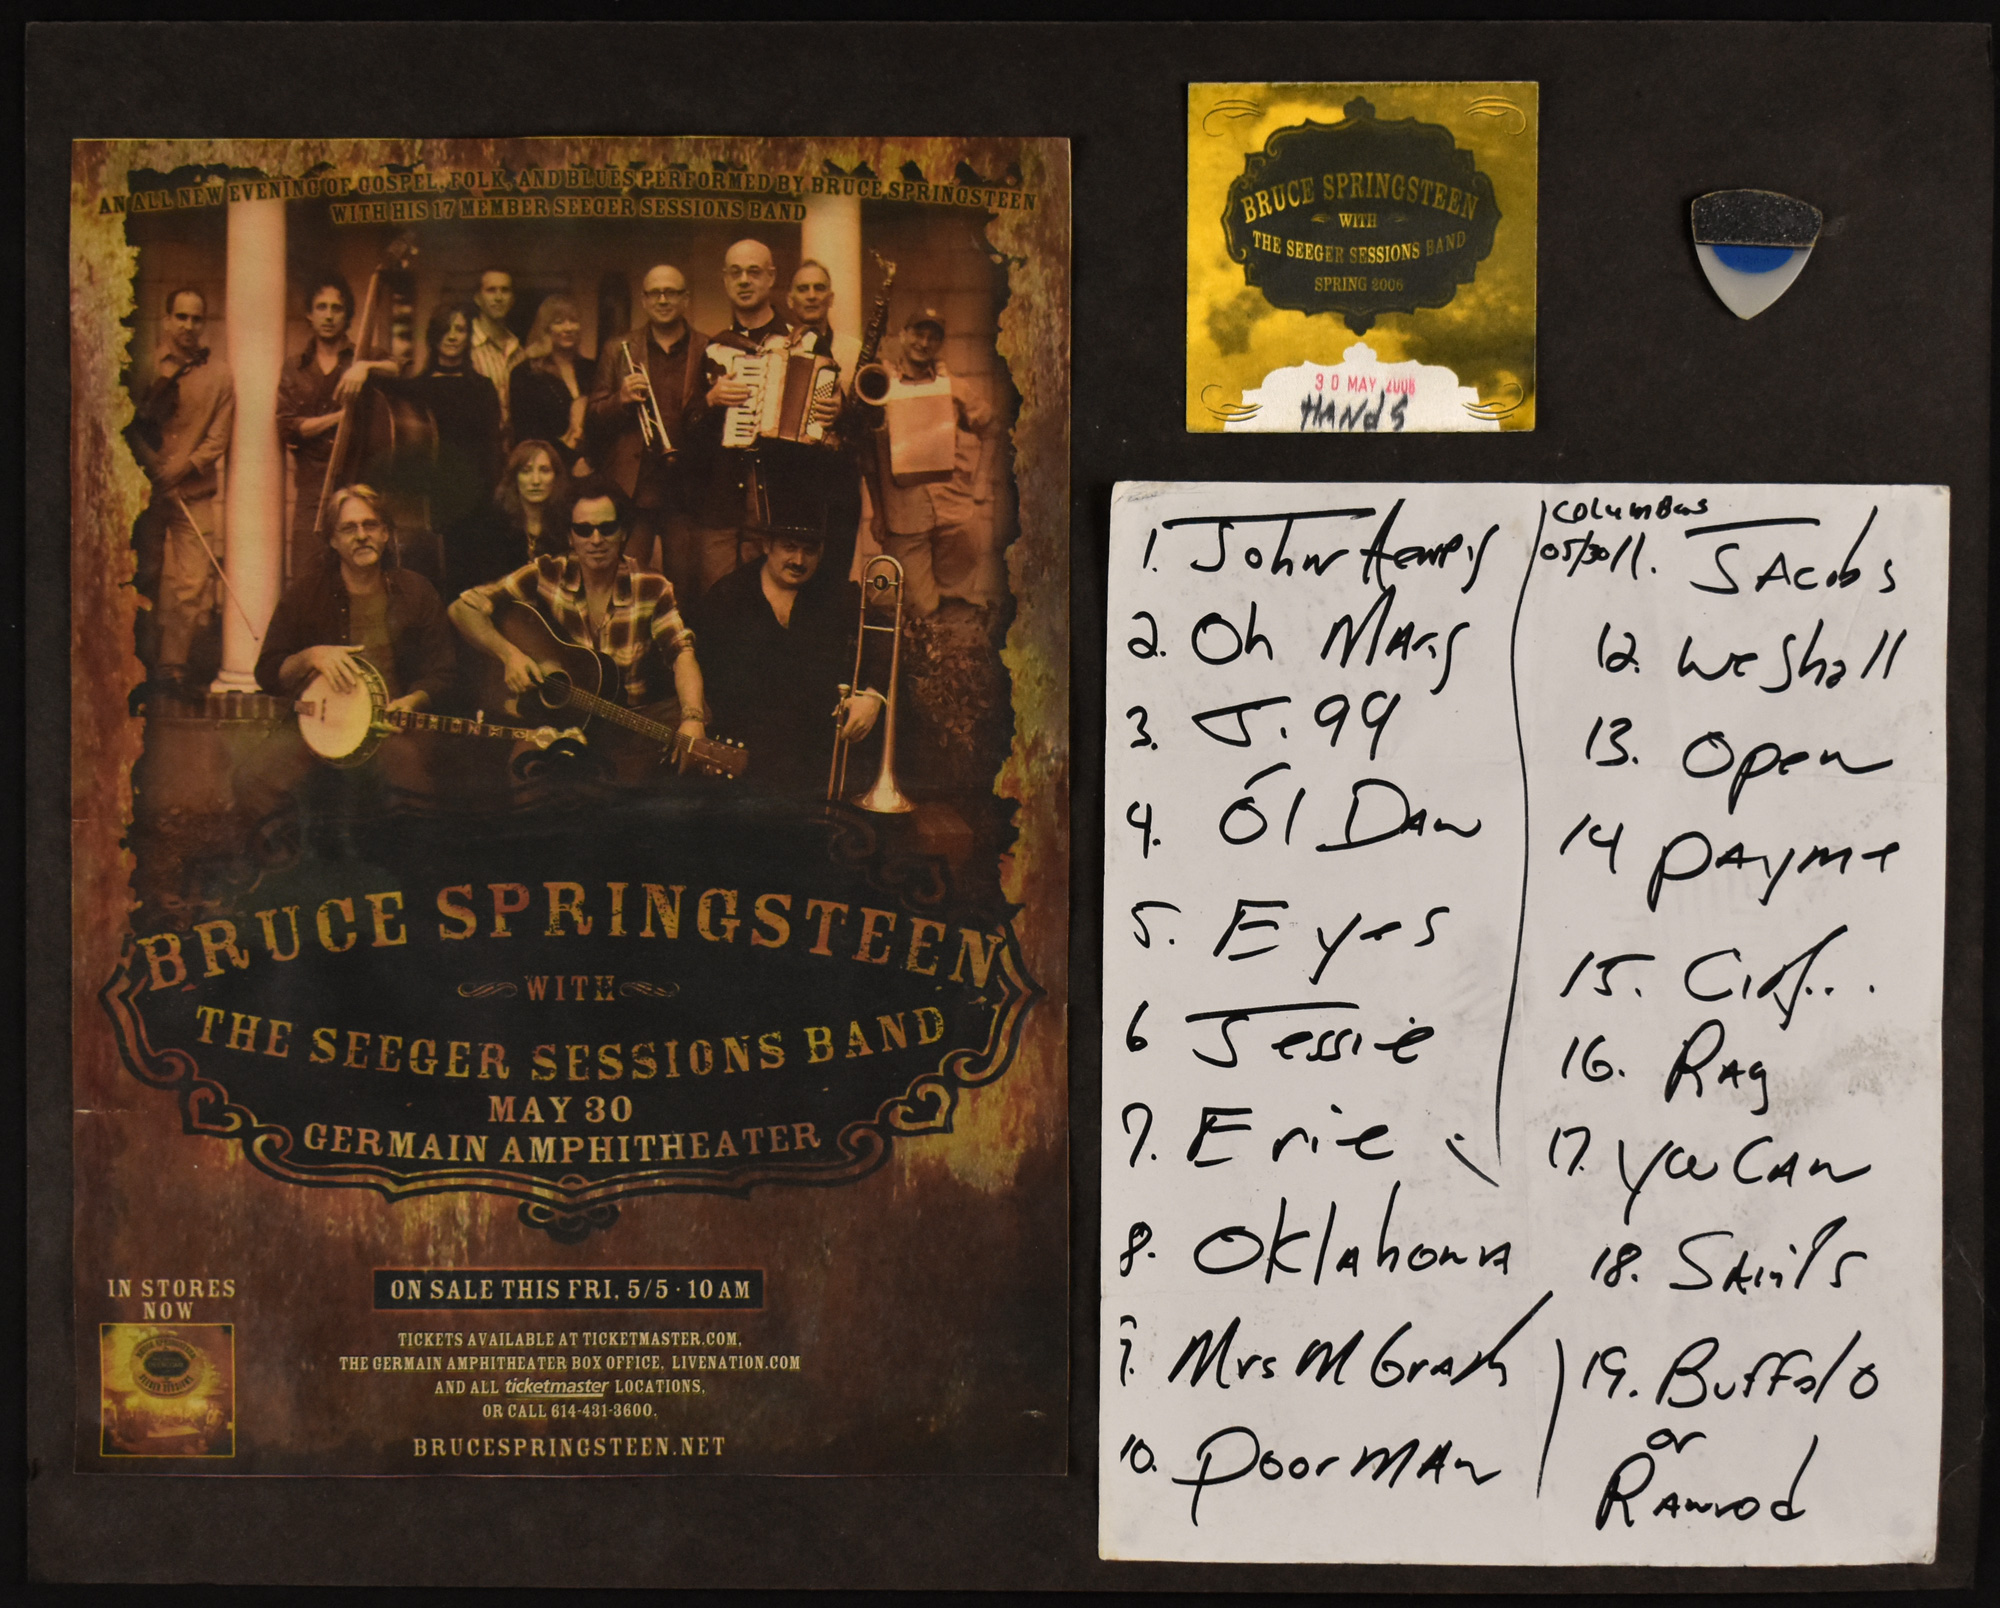 AN ALL NEW EVENING OF GOSPEL, FOLK, AND BLUES PERFORMED BY BRUCE SPRINGSTEEN
WITH HIS 17 MEMBER SEEGER SESSIONS BAND
BRUCE SPRINGSTEEN
WITH
THE SEEGER SESSIONS BAND
MAY 30
GERMAIN AMPHITHEATER
IN STORES
NOW
ON SALE THIS FRI, 5/5 · 10 AM
TICKETS AVAILABLE AT TICKETMASTER.COM,
THE GERMAIN AMPHITHEATER BOX OFFICE, LIVENATION.COM
AND ALL ticketmaster LOCATIONS,
OR CALL 614-431-3600.
BRUCESPRINGSTEEN.NET
BRUCE SPRINGSTEEN
WITH
THE SEEGER SESSIONS BAND
SPRING 2006
30 MAY 2006
HANdS
1. John Henry
2. Oh Mary
3. J. 99
4. Ol Dan
5. Eyes
6 Jessie
7. Erie
8. Oklahoma
9. Mrs McGrath
10. Poor MAn
COLumBus
05/30
11. JAcobs
12. We Shall
13. Open
14 pAy me
15.
16. RAg
17. You CAn
18. SAints
19. BuffAlo
or
RAmrod